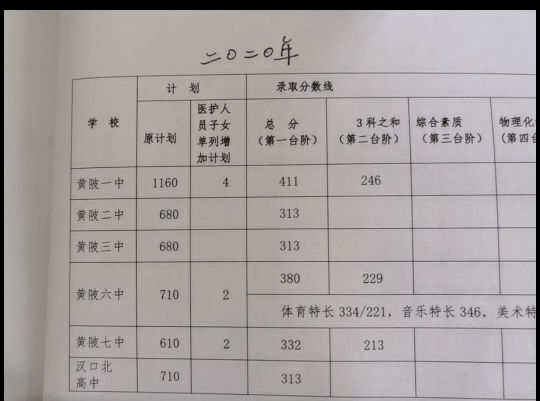 二〇二〇年
学校 计划 录取分数线
原计划 医护人员子女单列增加计划 总分（第一台阶） 3科之和（第二台阶） 综合素质（第三台阶） 物理化 （第四
黄陂一中 1160 4 411 246
黄陂二中 680 313
黄陂三中 680 313
黄陂六中 710 2 380 229
体育特长 334/221，音乐特长 346，美术特
黄陂七中 610 2 332 213
汉口北高中 710 313